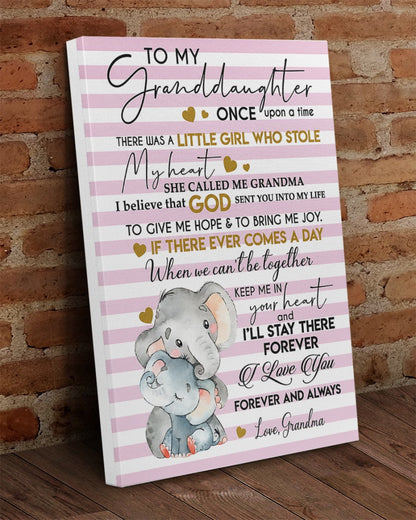 TO MY
Granddaughter
ONCE upon a time
THERE WAS A LITTLE GIRL WHO STOLE
My heart
SHE CALLED ME GRANDMA
I believe that GOD SENT YOU INTO MY LIFE
TO GIVE ME HOPE & TO BRING ME JOY.
IF THERE EVER COMES A DAY
When we can't be together
KEEP ME IN
your heart
and
I'LL STAY THERE
FOREVER
I Love You
FOREVER AND ALWAYS
Love, Grandma